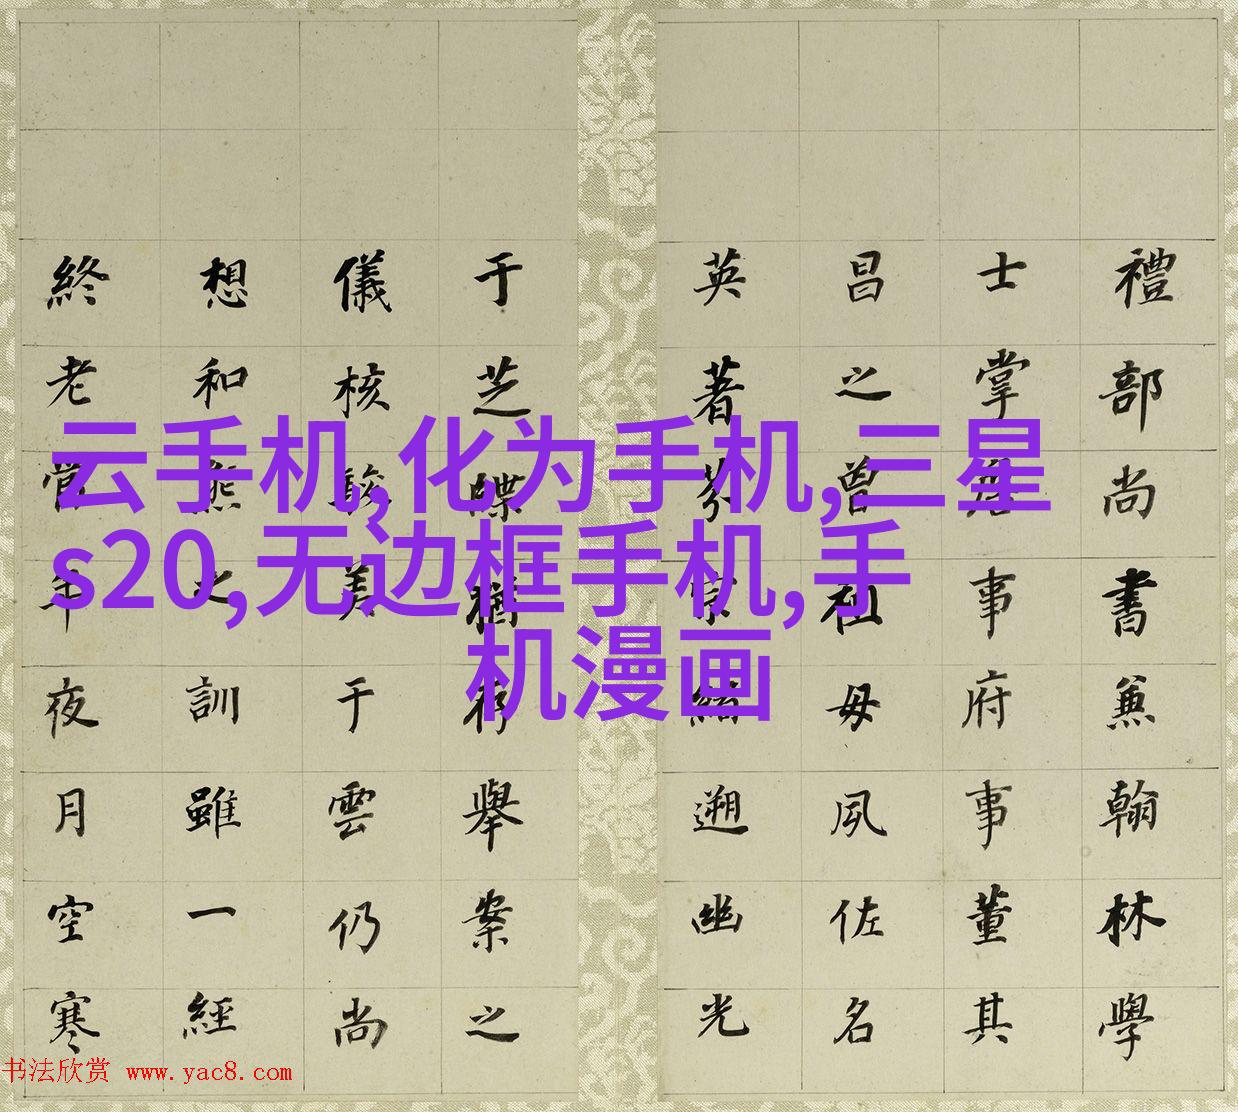 云手机,化为手机,三星
s20,无边框手机,手
机漫画
禮部尚書兼翰林學
士掌事府事董其
昌之曾祖母夙佐名
英著芬遡幽光
于芝猶存舉案之
儀核美于雲仍尚
想和熊之訓雖一經
終老年夜月空寒
书法欣赏 www.yac8.com